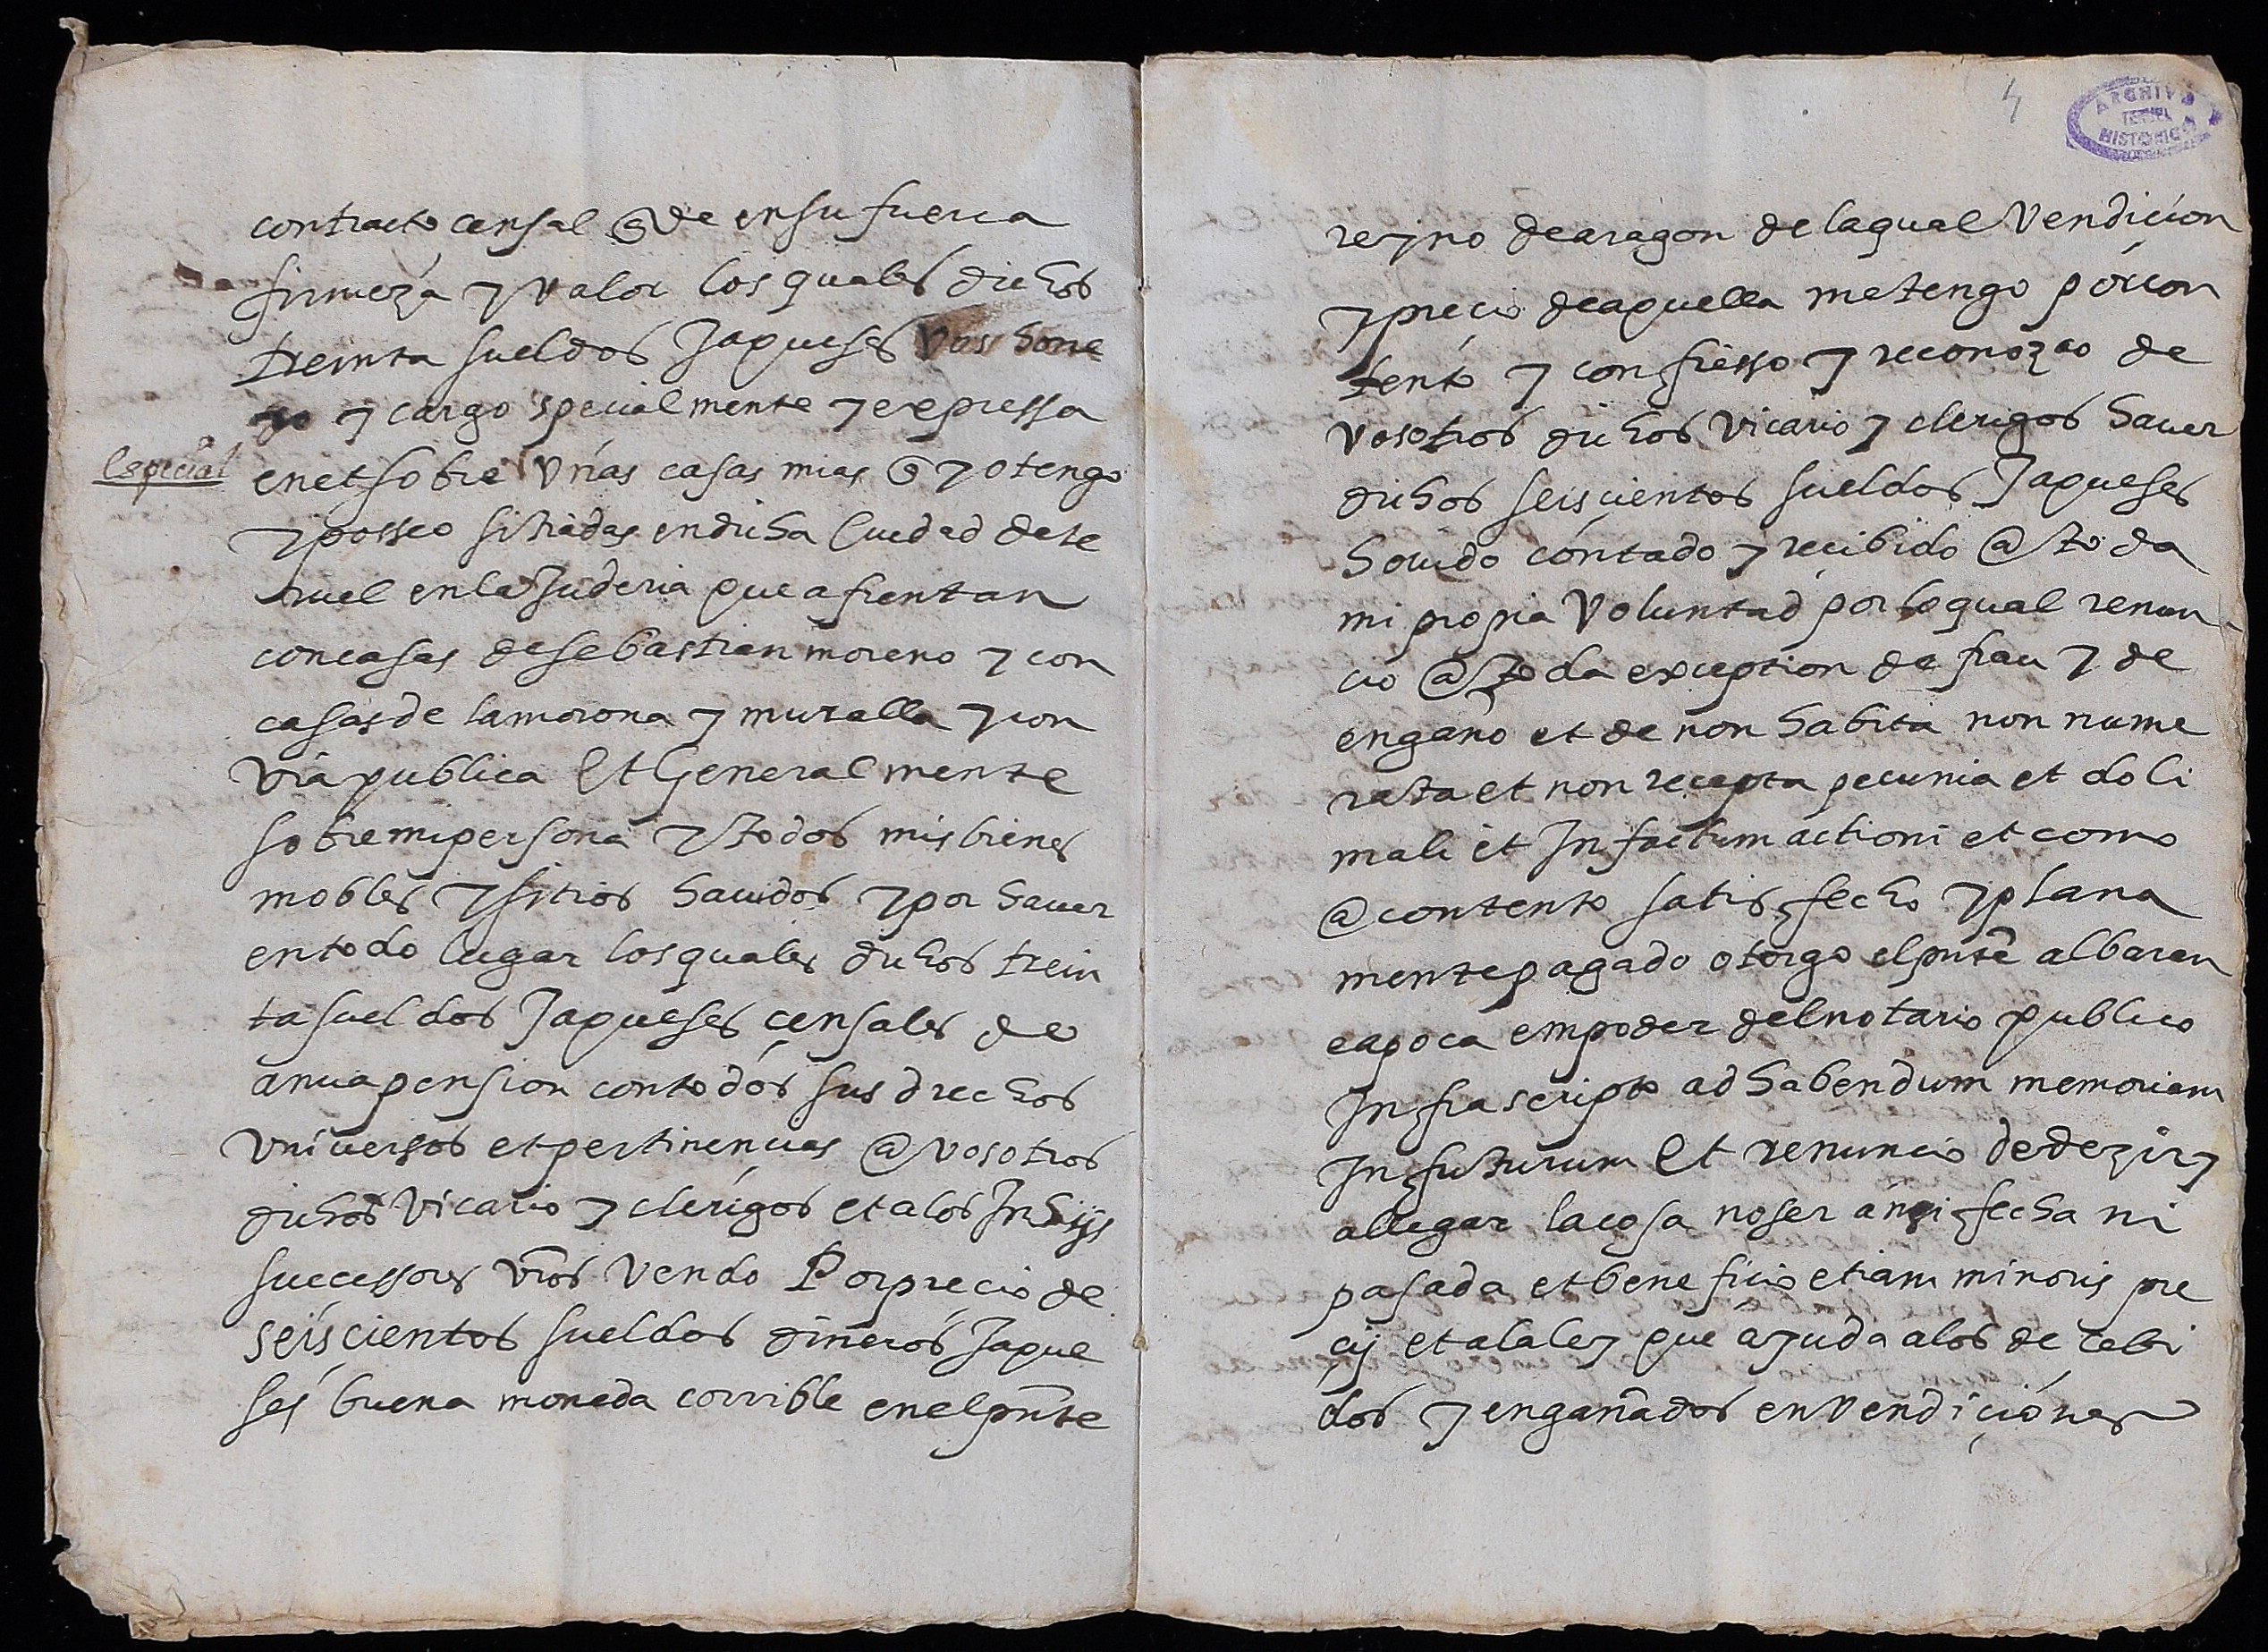 contracto censal @de ensu fuerca
firmeza y valor los quales dichos
treinta sueldos Jaqueses vos hone
go y cargo specialmente y expressa
Especial
en et sobre unas casas mias @ yo tengo
y posseo sitiadas en dicha Ciudad de te
ruel en la Juderia que afrentan
con casas de sebastian moreno y con
casas de la morona y muralla y con
via publica Et Generalmente
sobre mi persona y todos mis bienes
mobles y sitios hauidos y por hauer
en todo lugar los quales dichos trein
ta sueldos Jaqueses çensales de
anua pension con todos sus drechos
vniuersos et pertinencias @ vosotros
dichos vicario y clerigos et a los In hijs
successores vros vendo Por precio de
seiscientos sueldos dineros Jaque
ses buena moneda corrible en el pnte
4
ARCHIVO
TERUEL
HISTORICO
reyno de aragon de la qual vendicion
y precio de aquella me tengo por con
tento y confiesso y reconozco de
vosotros dichos vicario y clerigos hauer
dichos seiscientos sueldos Jaqueses
houido contado y recibido @ toda
mi propia voluntad por lo qual renun
cio @ toda exception de frau y de
engaño et de non habita non nume
rata et non recepta pecunia et doli
mali et In factum actioni et como
@ contento satisfecho y plana
mente pagado otorgo el pnte albaran
e apoca em poder del notario publico
Infrascripto ad habendum memoriam
In futurum Et renuncio de dezir y
allegar la cosa no ser ansi fecha ni
pasada et beneficio etiam minoris pre
cij et a la ley que ayuda a los de cebi
dos y engañados en vendiçiones